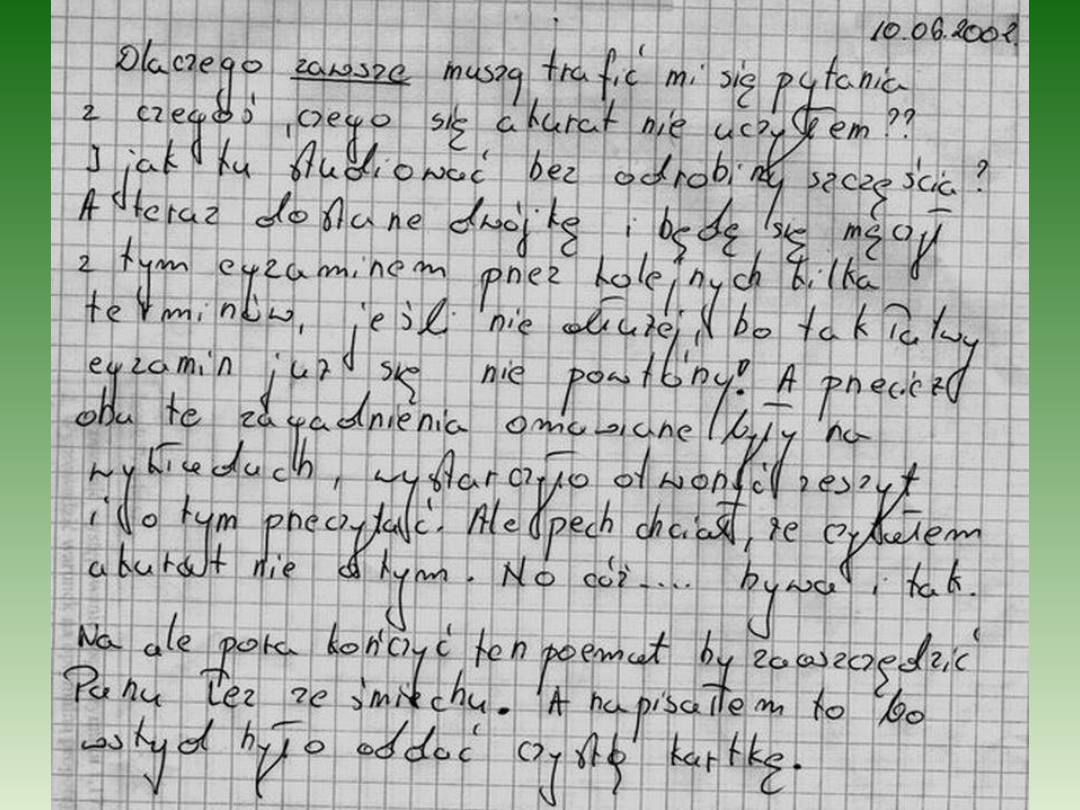 10.06.2002
Dlaczego zawsze muszą trafić mi się pytania
z czegoś, czego się akurat nie uczyłem??
I jak tu studiować bez odrobiny szczęścia?
A teraz dostanę dwójkę i będę się męczył
z tym egzaminem przez kolejnych kilka
terminów, jeśli nie dłużej, bo tak łatwy
egzamin już się nie powtórzy! A przecież
oba te zagadnienia omawiane były na
wykładach, wystarczyło otworzyć zeszyt
i o tym przeczytać. Ale pech chciał, że czytałem
akurat nie o tym. No cóż.... bywa i tak.
Na ale pora kończyć ten poemat by zaoszczędzić
Panu łez ze śmiechu. A napisałem to bo
wstyd było oddać czystą kartkę.